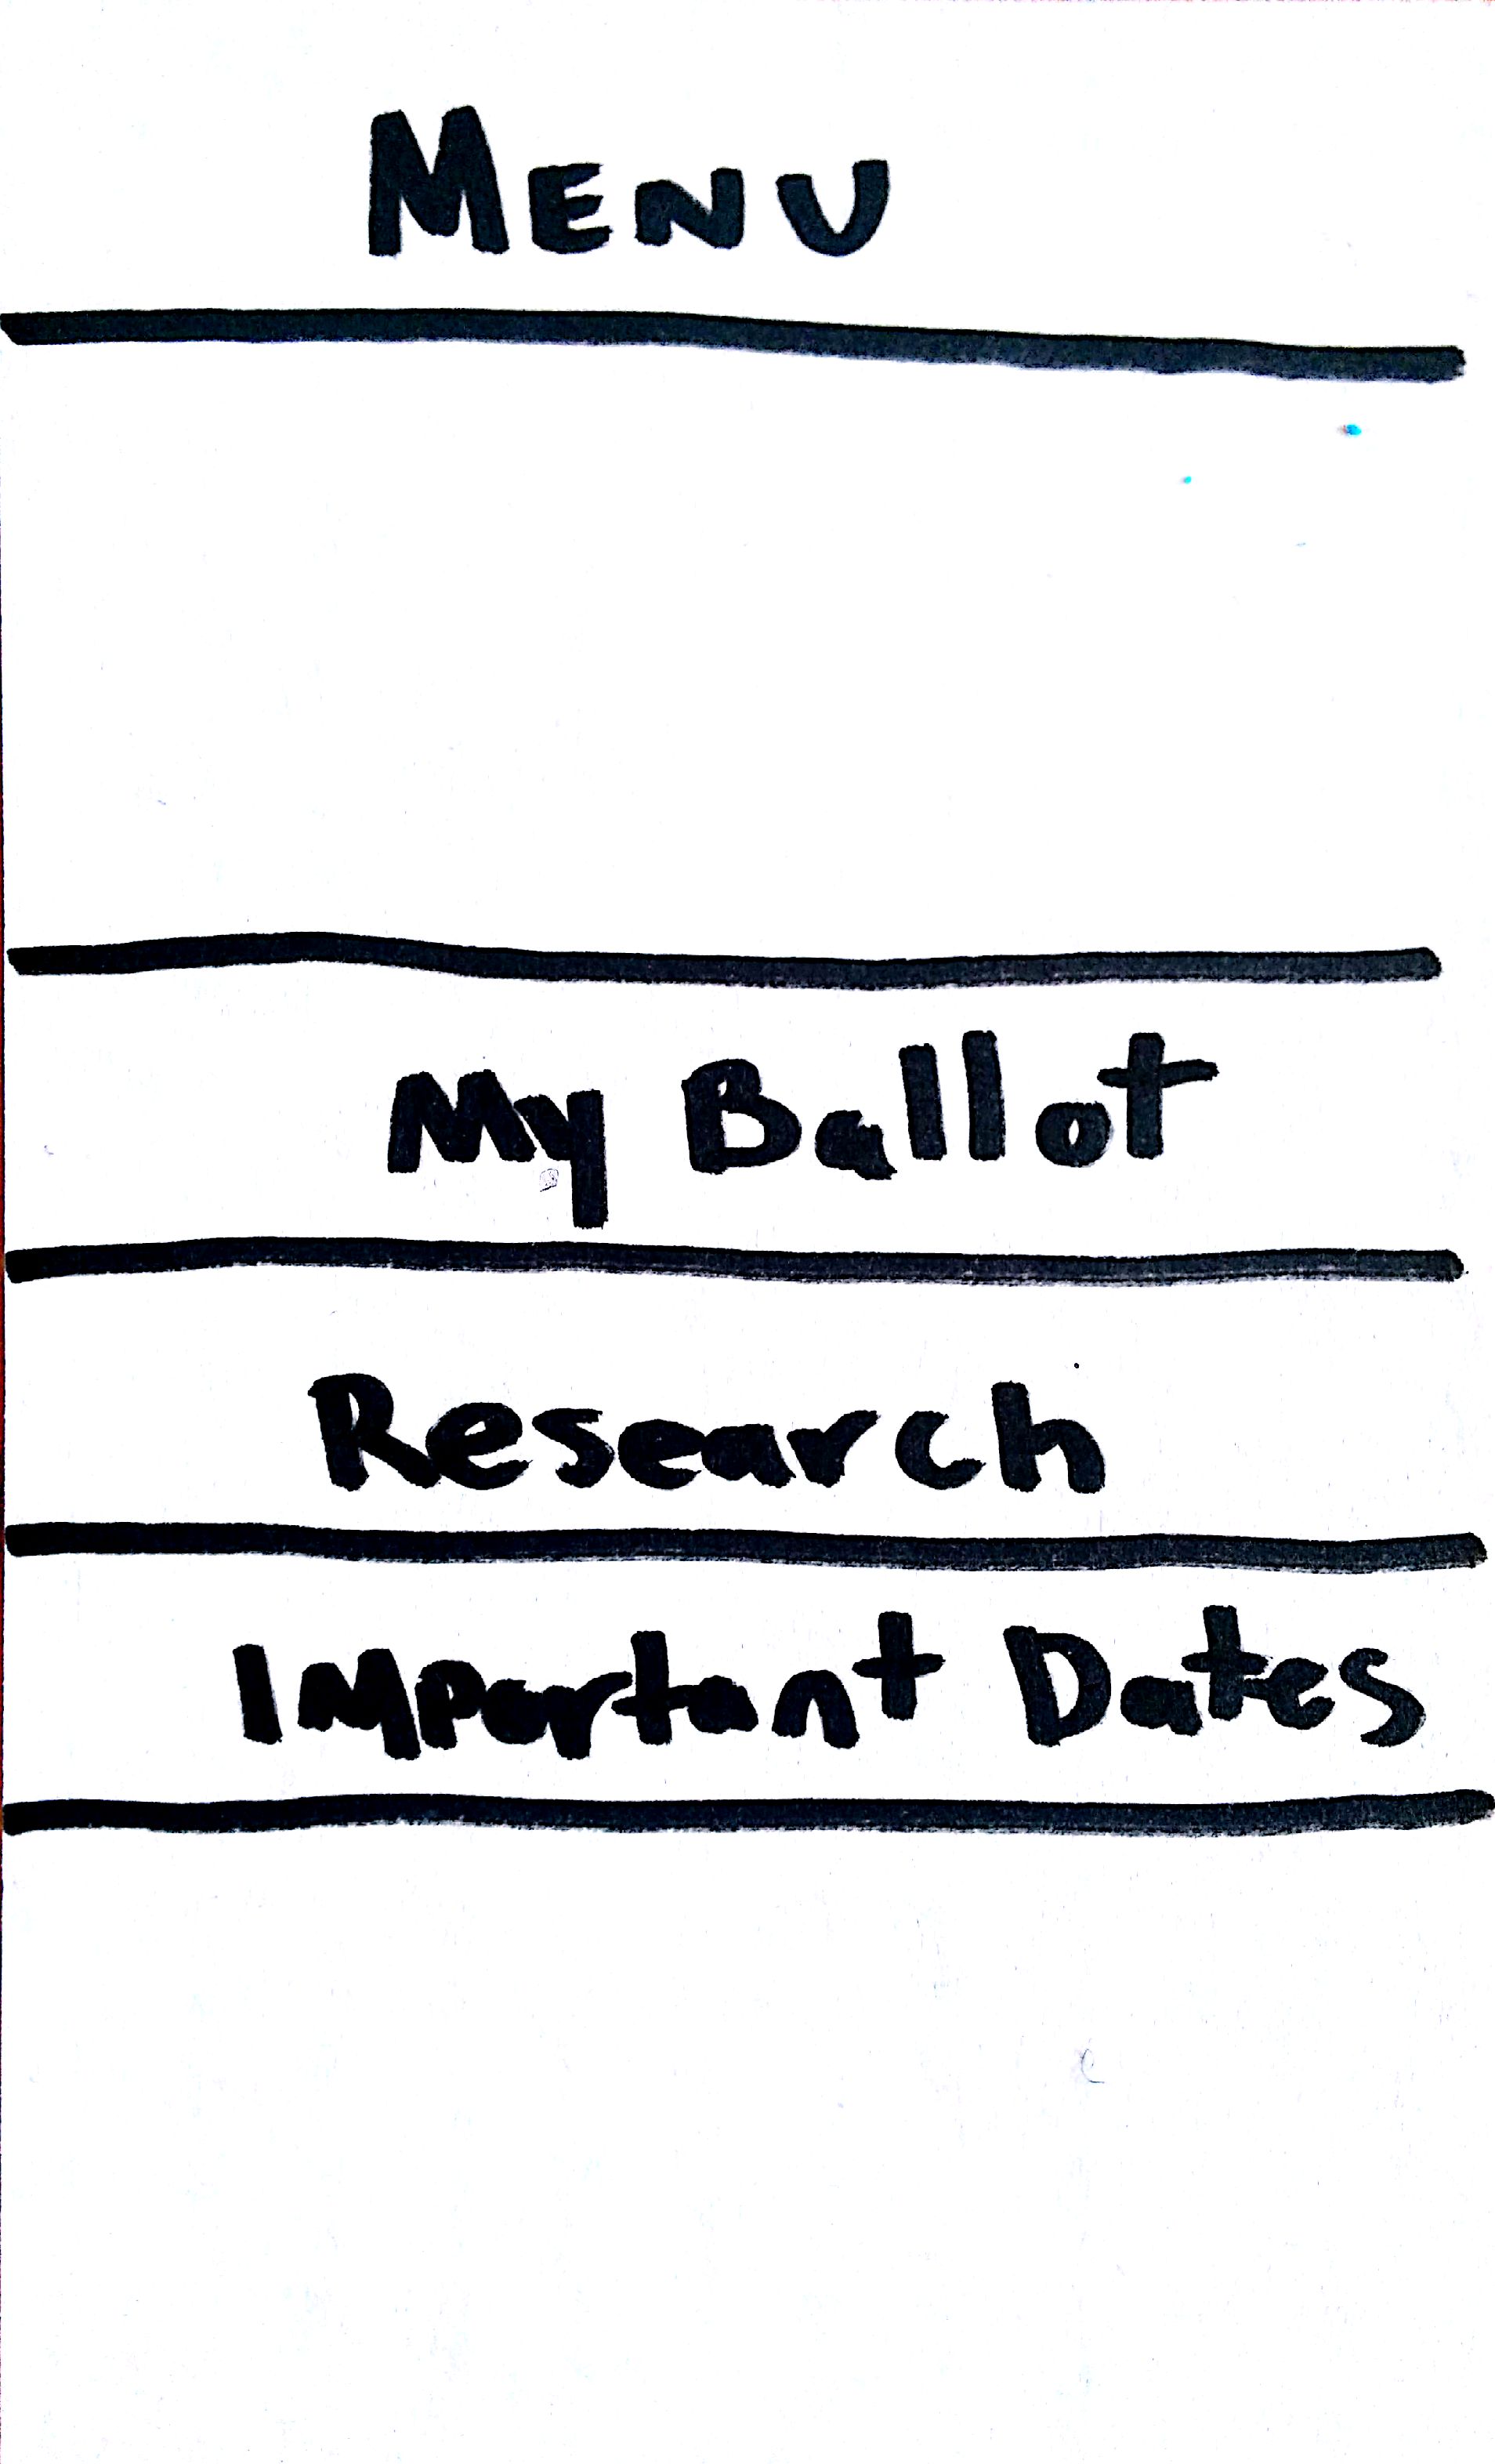 MENU
My Ballot
Research
Important Dates